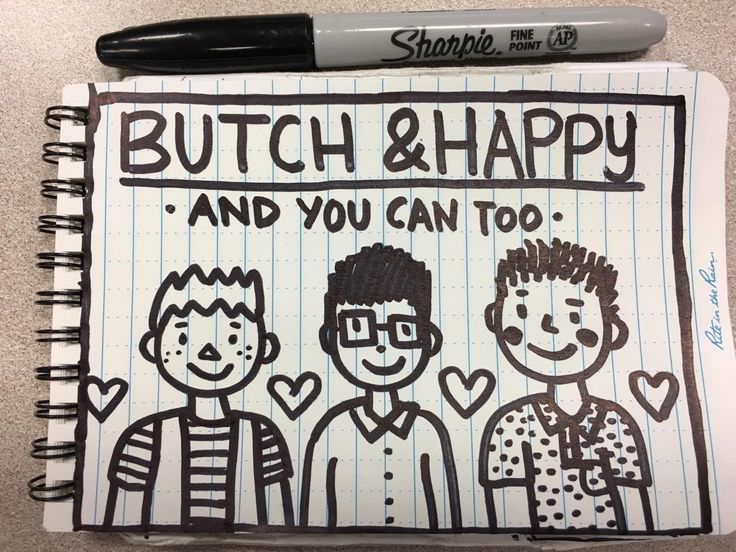 Sharpie FINE POINT AP
BUTCH & HAPPY
• AND YOU CAN TOO •
Rite in the Rain